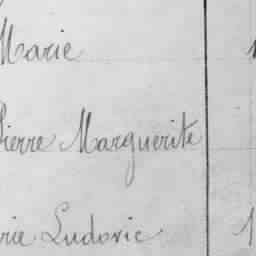 Marie
Pierre Marguerite
rie Ludovic 1